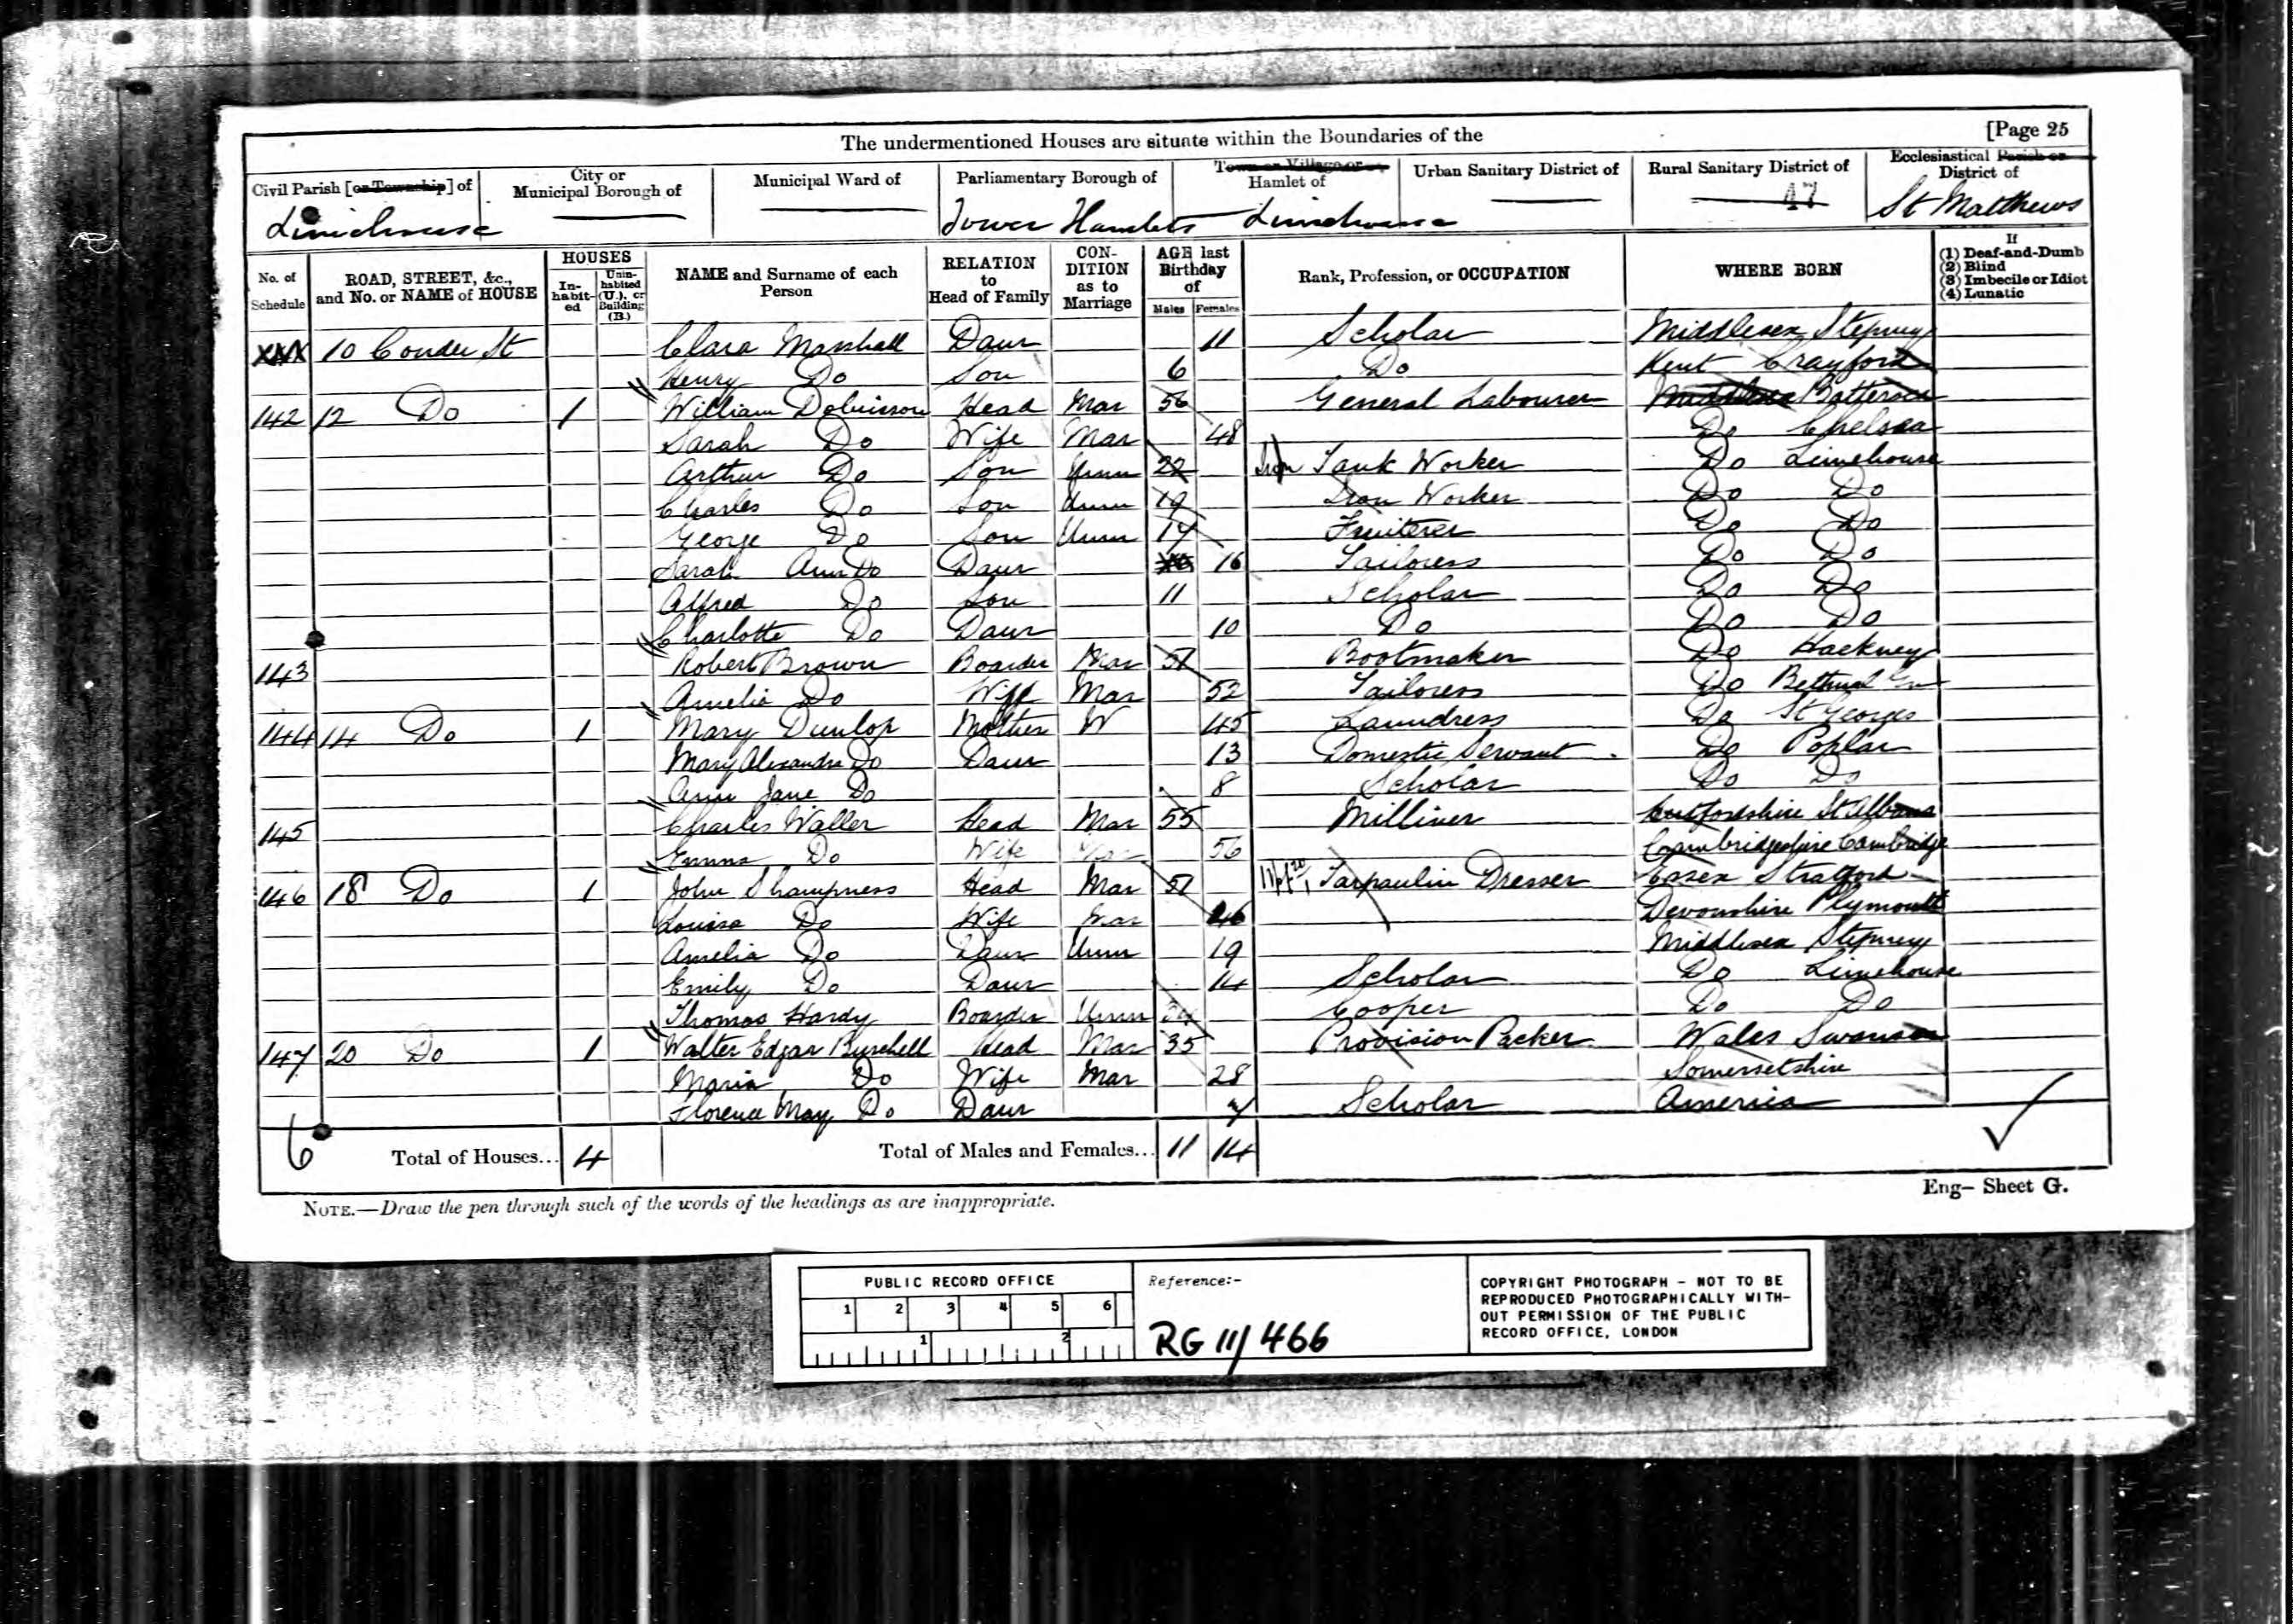 The undermentioned Houses are situate within the Boundaries of the [Page 25
Civil Parish [or Township] of City or Municipal Borough of Municipal Ward of Parliamentary Borough of Town or Village or Hamlet of Urban Sanitary District of Rural Sanitary District of Ecclesiastical Parish or District of
Limehouse Tower Hamlets Limehouse 47 St Matthews
No. of Schedule ROAD, STREET, &c., and No. or NAME of HOUSE HOUSES In-habit-ed Unin-habited (U.), or Building (B.) NAME and Surname of each Person RELATION to Head of Family CON-DITION as to Marriage AGE last Birthday of Males Females Rank, Profession, or OCCUPATION WHERE BORN If (1) Deaf-and-Dumb (2) Blind (3) Imbecile or Idiot (4) Lunatic
10 Conder St Clara Marshall Daur 11 Scholar Middlesex Stepney
Henry Do Son 6 Do Kent Crayford
142 12 Do 1 William Dobinson Head Mar 56 General Labourer Middlesex Battersea
Sarah Do Wife Mar 48 Do Chelsea
Arthur Do Son Unm 22 Iron Tank Worker Do Limehouse
Charles Do Son Unm 19 Iron Worker Do Do
George Do Son Unm 17 Fruiterer Do Do
Sarah Ann Do Daur 16 Tailoress Do Do
Alfred Do Son 11 Scholar Do Do
Charlotte Do Daur 10 Do Do Do
143 Robert Brown Boarder Mar 51 Bootmaker Do Hackney
Amelia Do Wife Mar 52 Tailoress Do Bethnal Grn
144 14 Do 1 Mary Dunlop Mother W 45 Laundress Do St Georges
Mary Alexandra Do Daur 13 Domestic Servant Do Poplar
Ann Jane Do 8 Scholar Do Do
145 Charles Waller Head Mar 55 Milliner Hertfordshire St Albans
Emma Do Wife Mar 56 Cambridgeshire Cambridge
146 18 Do 1 John Shampness Head Mar 51 Tarpaulin Dresser Essex Stratford
Louisa Do Wife Mar 46 Devonshire Plymouth
Amelia Do Daur Unm 19 Middlesex Stepney
Emily Do Daur 14 Scholar Do Limehouse
Thomas Hardy Boarder Unm Cooper Do Do
147 20 Do 1 Walter Edgar Burchell Head Mar 35 Provision Packer Wales Swansea
Maria Do Wife Mar 28 Somersetshire
Florence May Do Daur 7 Scholar America
6 Total of Houses... 4 Total of Males and Females... 11 14
NOTE.—Draw the pen through such of the words of the headings as are inappropriate.
Eng- Sheet G.
PUBLIC RECORD OFFICE
1 2 3 4 5 6
1 2
Reference:-
RG 11/466
COPYRIGHT PHOTOGRAPH - NOT TO BE
REPRODUCED PHOTOGRAPHICALLY WITH-
OUT PERMISSION OF THE PUBLIC
RECORD OFFICE, LONDON